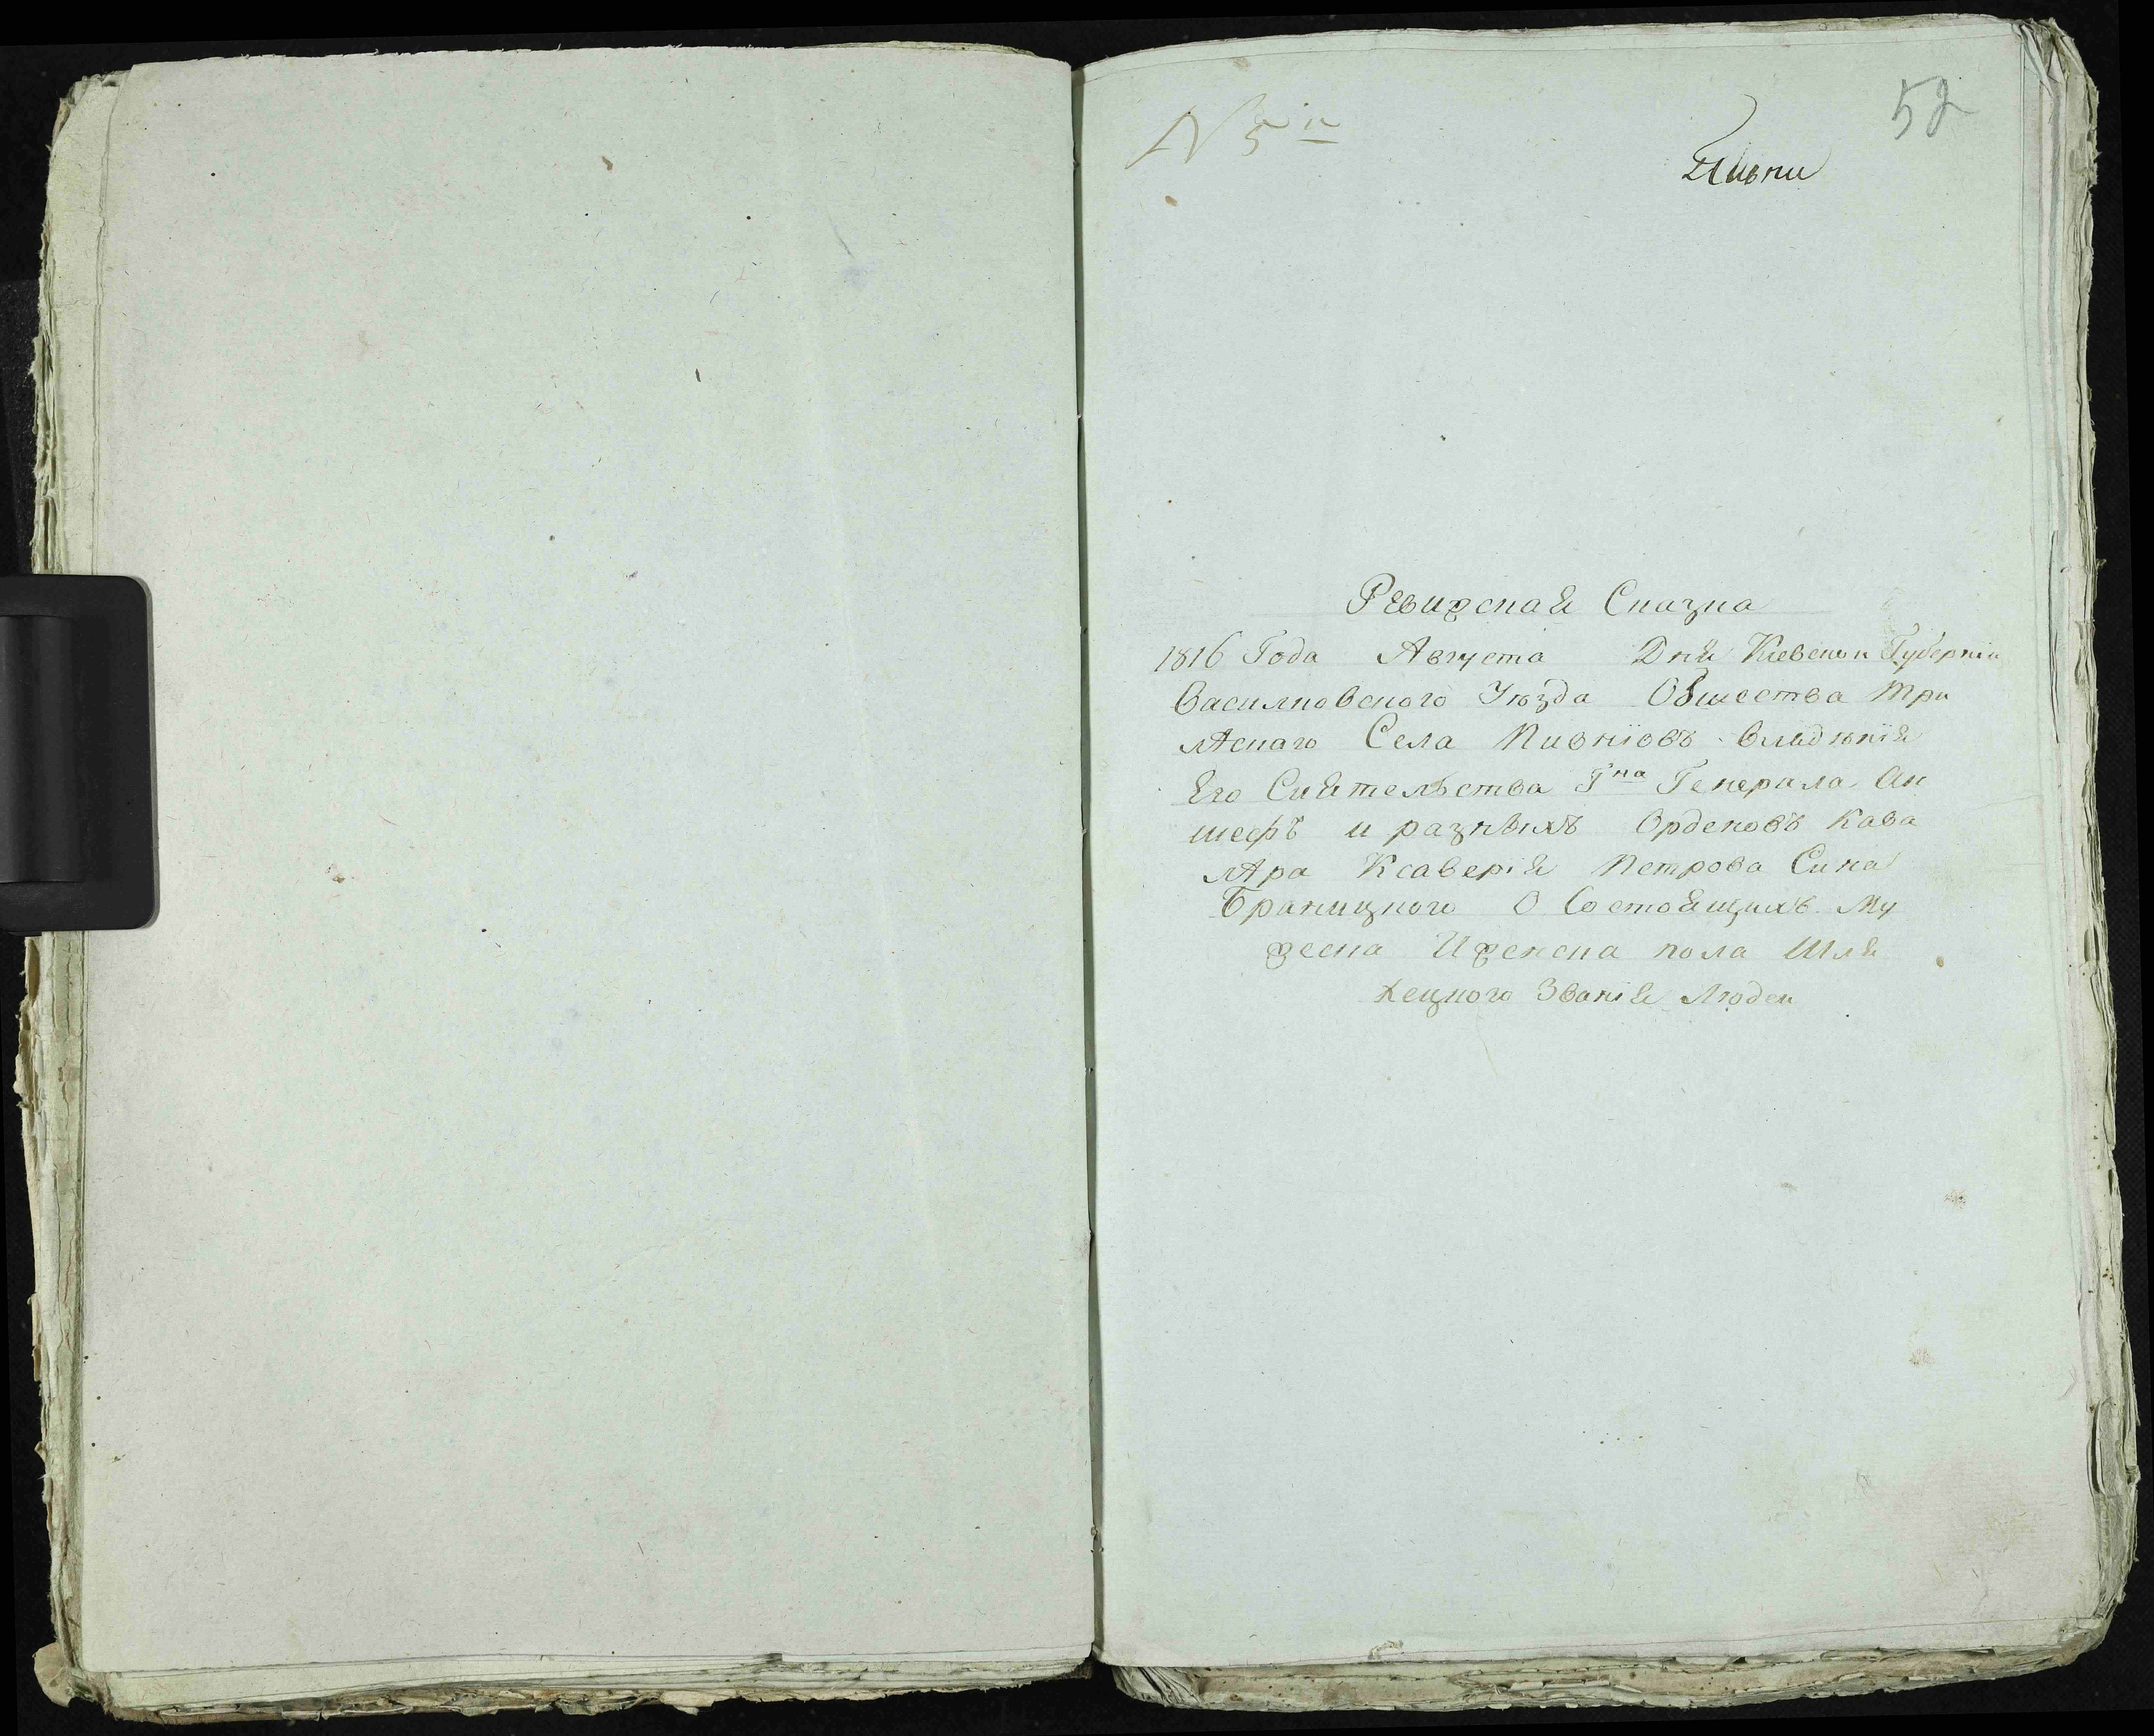 N 5
52
Ревижская Сказка
1816 Года Августа Дня Киевской Губернiи
Василковского Уѣзда Общества Три
лѣскаго Села Пивнiовъ Владѣнiя
Его Сиятельства Гна Генерала Ан
шефъ и разныхъ Орденовъ Кава
лѣра Ксаверiя Петрова Сина
Браницкого О Состоящихъ Му
жеска Иженска пола Шля
хецкого Званiя Людеи